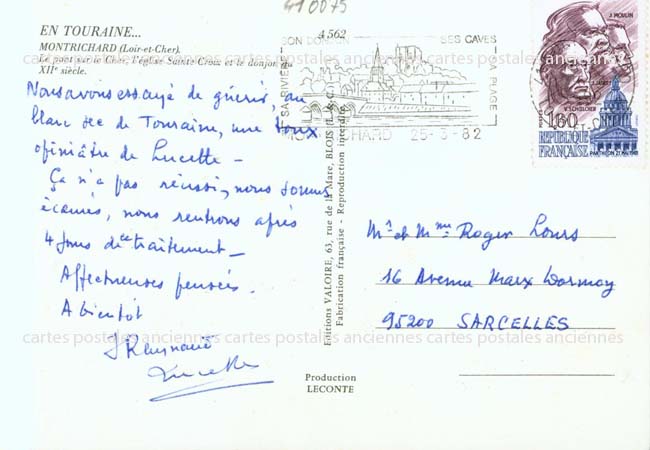 410075
EN TOURAINE...
MONTRICHARD (Loir-et-Cher).
Le pont sur le Cher, l'église Sainte-Croix et le donjon du
XIIe siècle.
4562
SON DONJON SES CAVES
SA RIVIERE
PLAGE
MONTRICHARD 25-3-82
J. MOULIN
J. JAURÈS
V. SCHOELCHER
1,60
RÉPUBLIQUE
FRANÇAISE
PANTHÉON 21 MAI 1981
Nous avons essayé de guérir, au
blanc sec de Touraine, une toux
opiniâtre de Lucette –
Ça n'a pas réussi, nous sommes
écœurés, nous rentrons après
4 jours de traitement –
Affectueuses pensées.
A bientôt
Lucette
Editions VALOIRE, 63, rue de la Mare, BLOIS (L.-&-C.)
Fabrication française - Reproduction interdite
Mr et Mme Roger Lours
16 Avenue Marx Dormoy
95200 SARCELLES
Production
LECONTE
cartes postales anciennes cartes postales anciennes cartes postales anciennes
cartes postales anciennes cartes postales anciennes cartes postales anciennes